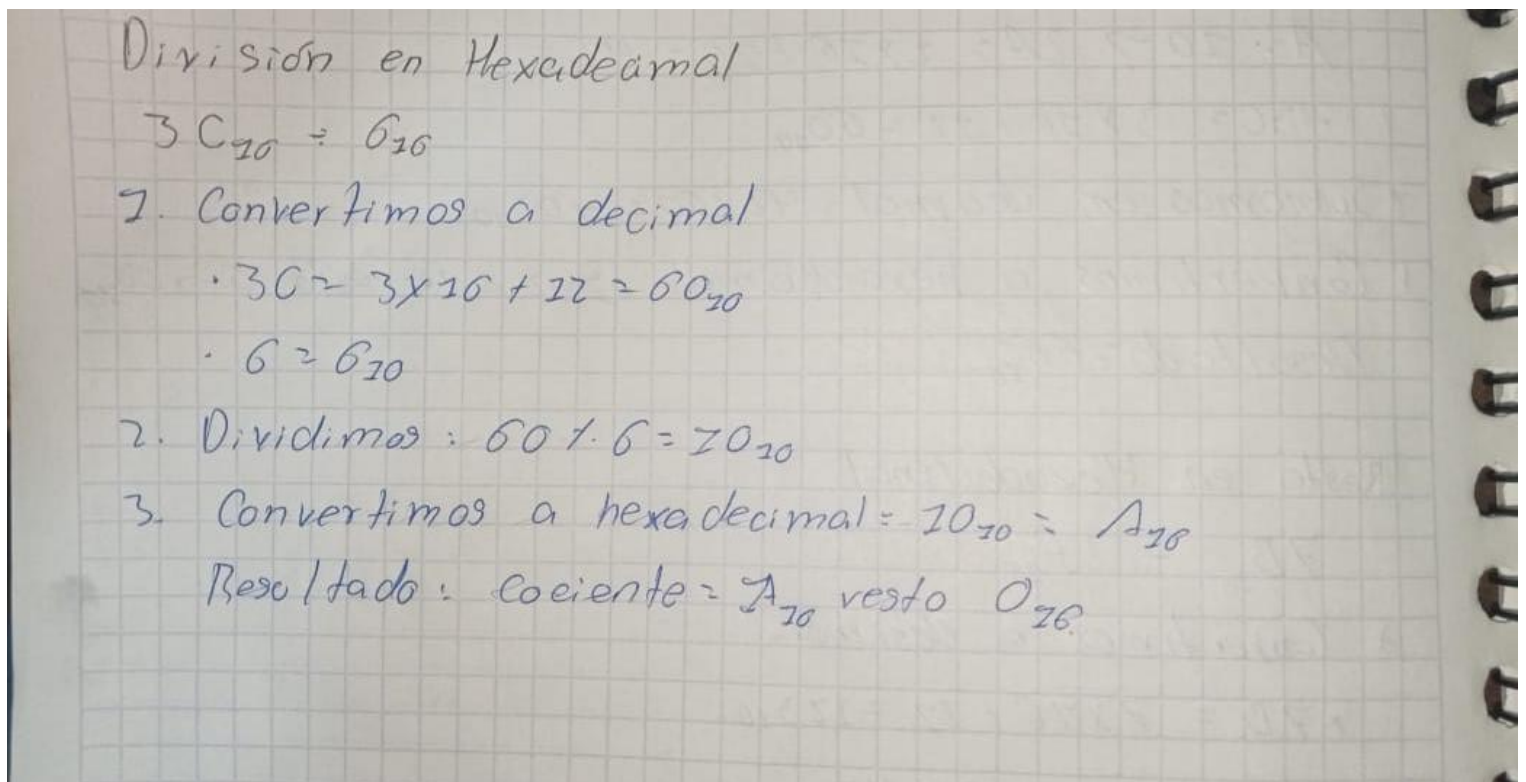 División en Hexadecimal
3C₁₆ ÷ 6₁₆
1. Convertimos a decimal
· 3C = 3x16 + 12 = 60₁₀
· 6 = 6₁₀
2. Dividimos : 60 ÷ 6 = 10₁₀
3. Convertimos a hexadecimal = 10₁₀ = A₁₆
Resultado : cociente = A₁₆ resto 0₁₆